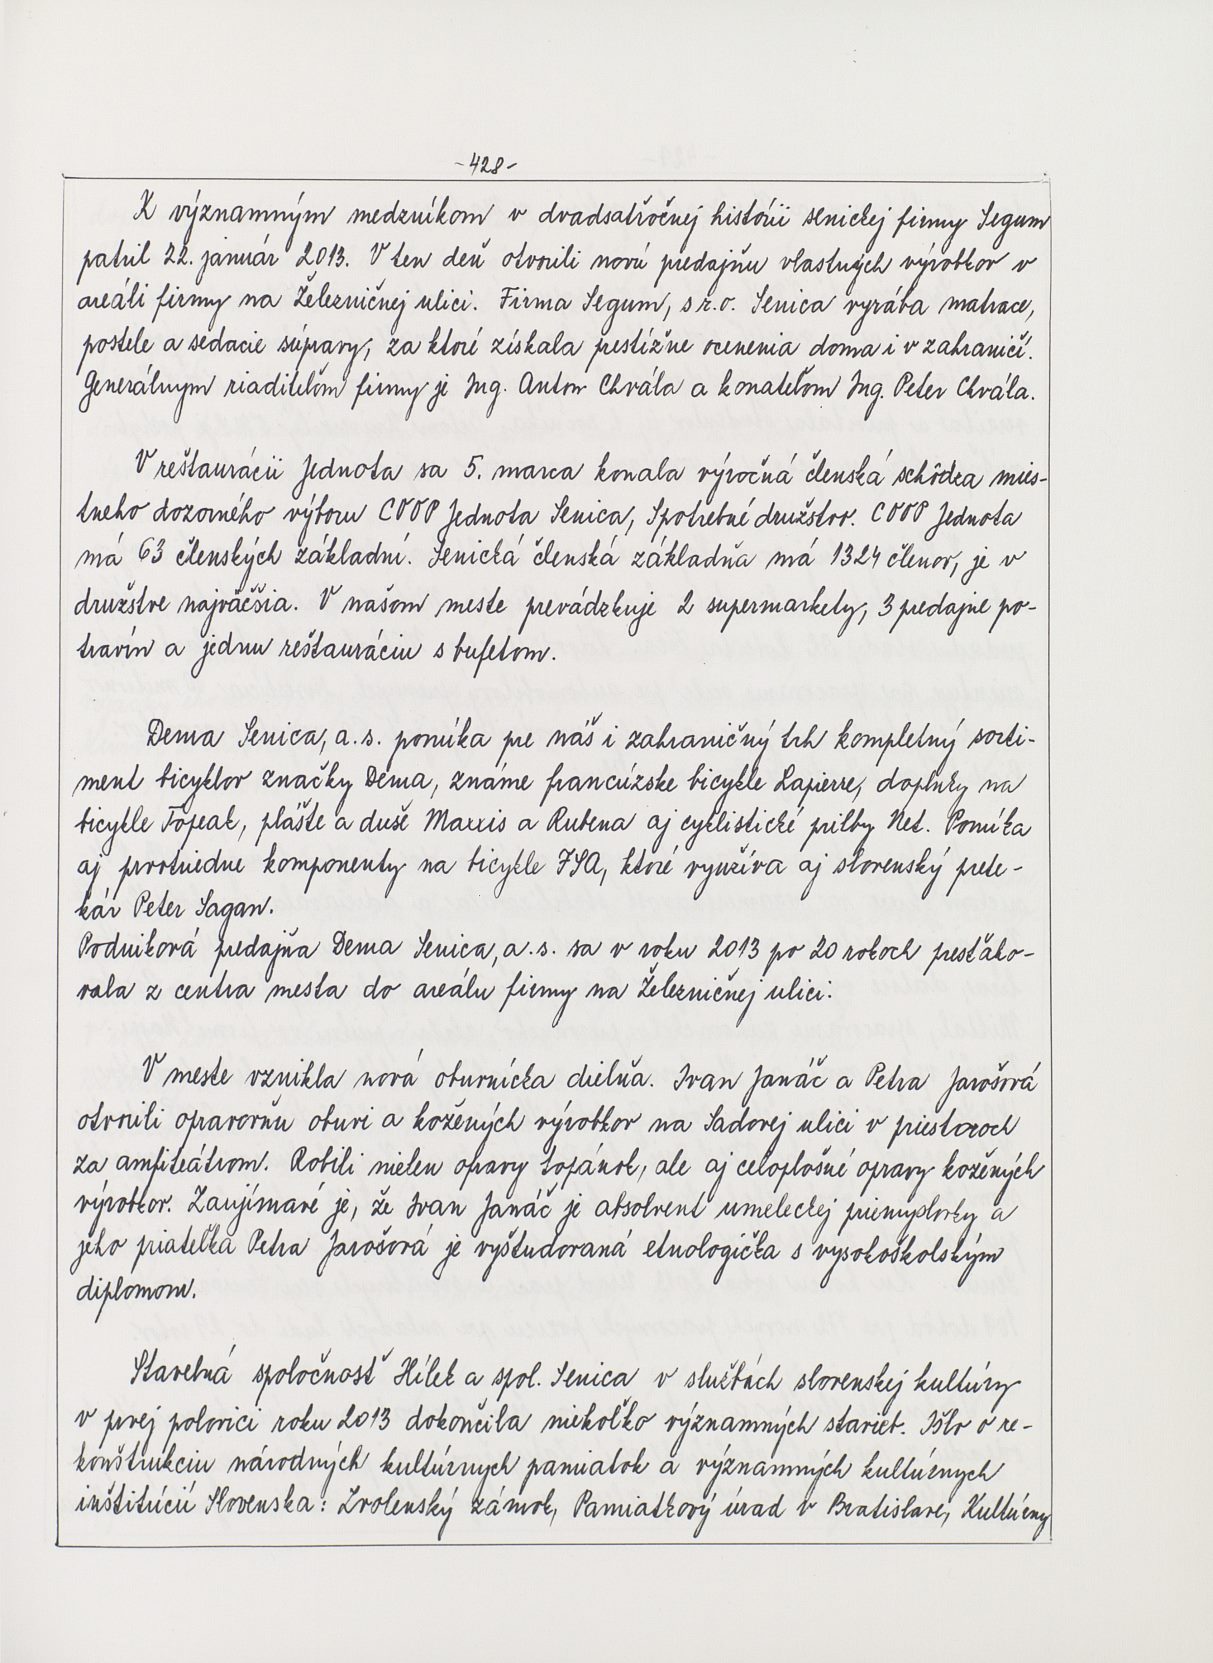 -428-
K významným medzníkom v dvadsaťročnej histórii senickej firmy Segum
patril 22. január 2013. V ten deň otvorili novú predajňu vlastných výrobkov v
areáli firmy na Železničnej ulici. Firma Segum, s r.o. Senica vyrába matrace,
postele a sedacie súpravy, za ktoré získala prestížne ocenenia doma i v zahraničí.
Generálnym riaditeľom firmy je Ing. Anton Chvála a konateľom Ing. Peter Chvála.
V reštaurácii Jednota sa 5. marca konala výročná členská schôdza mies-
tneho dozorného výboru COOP Jednota Senica, Spotrebné družstvo. COOP Jednota
má 63 členských základní. Senická členská základňa má 1324 členov, je v
družstve najväčšia. V našom meste prevádzkuje 2 supermarkety, 3 predajne po-
travín a jednu reštauráciu s bufetom.
Dema Senica, a.s. ponúka pre náš i zahraničný trh kompletný sorti-
ment bicyklov značky Dema, známe francúzske bicykle Lapierre, doplnky na
bicykle Topeak, plášte a duše Maxxis a Rubena aj cyklistické prilby Met. Ponúka
aj prvotriedne komponenty na bicykle FSA, ktoré využíva aj slovenský prete-
kár Peter Sagan.
Podniková predajňa Dema Senica, a.s. sa v roku 2013 po 20 rokoch presťaho-
vala z centra mesta do areálu firmy na Železničnej ulici.
V meste vznikla nová obuvnícka dielňa. Ivan Janáč a Petra Jarošová
otvorili opravovňu obuvi a kožených výrobkov na Sadovej ulici v priestoroch
za amfiteátrom. Robili nielen opravy topánok, ale aj celoplošné opravy kožených
výrobkov. Zaujímavé je, že Ivan Janáč je absolvent umeleckej priemyslovky a
jeho priateľka Petra Jarošová je vyštudovaná etnologička s vysokoškolským
diplomom.
Stavebná spoločnosť Hílek a spol. Senica v službách slovenskej kultúry
v prvej polovici roku 2013 dokončila niekoľko významných stavieb. Išlo o re-
konštrukciu národných kultúrnych pamiatok a významných kultúrnych
inštitúcií Slovenska: Zvolenský zámok, Pamiatkový úrad v Bratislave, Kultúrny